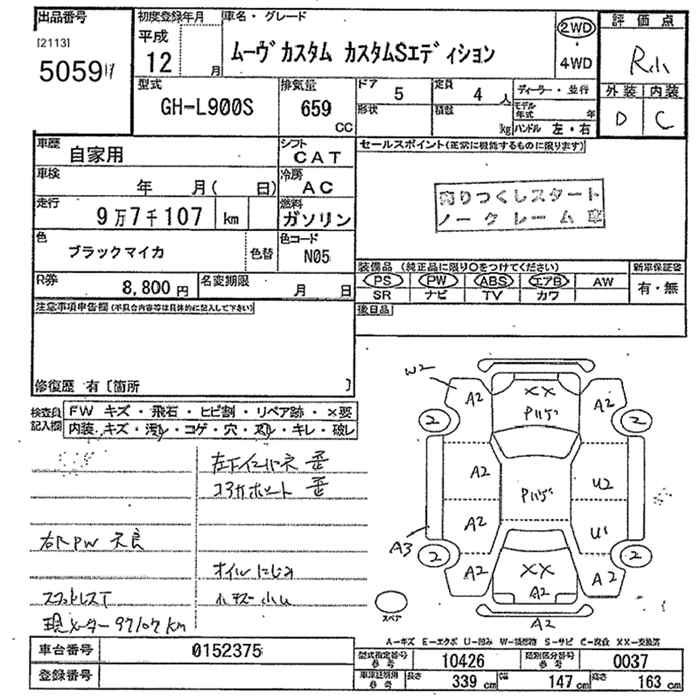 出品番号
[2113]
5059
初度登録年月
平成
12 月
車名・グレード
ムーヴカスタム カスタムSエディション
2WD
・
4WD
評価点
R小
外装 内装
D C
型式
GH-L900S
排気量
659
CC
ドア
5
定員
4 人
形状
積載
kg
ディーラー・並行
モデル
年式 年
ハンドル 左・右
車歴
自家用
シフト
CAT
セールスポイント(正常に機能するものに限ります)
売りつくしスタート
ノークレーム車
車検
年 月( 日)
冷房
AC
走行
9万7千107 km
燃料
ガソリン
色
ブラックマイカ
色替
色コード
N05
装備品 (純正品に限り○をつけてください)
PS PW ABS エアB AW
SR ナビ TV カワ
新車保証書
有・無
R券
8,800円
名変期限
月 日
後日品
注意事項申告欄(不具合内容等は具体的に記入して下さい)
修復歴 有〔箇所 〕
検査員
記入欄
FW キズ・飛石・ヒビ割・リペア跡・×要
内装、キズ・汚レ・コゲ・穴・スレ・キレ・破レ
左下インパネ 歪
コアサポート 歪
右下PW 不良
オイルにじみ
現メーター97107km
W2
A2
××
Pハゲ
A2
2
2
A2
Pハゲ
U2
A2
U1
A3
2
2
A2
××
A2
A2
スペア
A2
A-キズ E-エクボ U-凹み W-補修跡 S-サビ C-腐食 XX-交換済
車台番号
0152375
登録番号
型式指定番号
参考
10426
類別区分番号
参考
0037
車庫証明用
参考
長さ
339 cm
幅
147 cm
高さ
163 cm